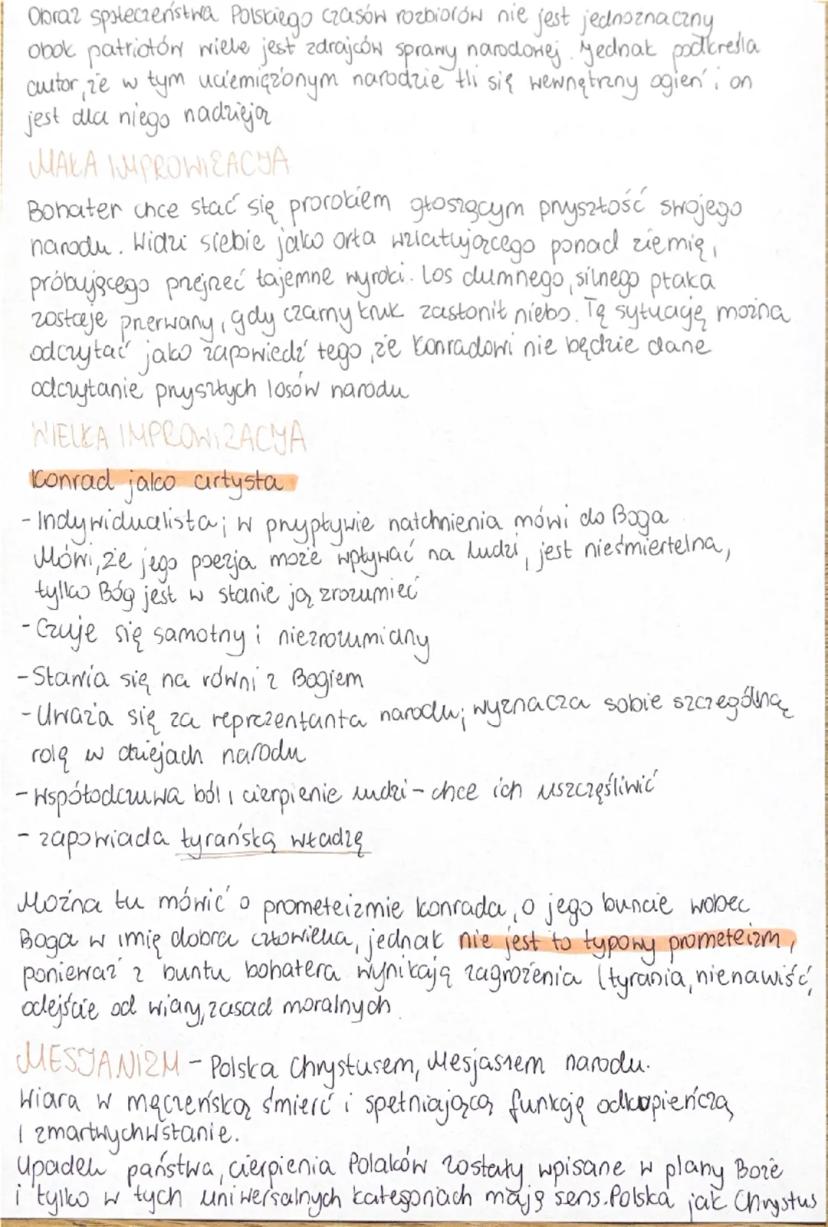 Obraz społeczeństwa Polskiego czasów rozbiorów nie jest jednoznaczny
obok patriotów wiele jest zdrajców sprawy narodowej. Jednak podkreśla
autor, że w tym uciemiężonym narodzie tli się wewnętrzny ogień i on
jest dla niego nadzieją
MAŁA IMPROWIZACJA
Bohater chce stać się prorokiem głoszącym przyszłość swojego
narodu. Widzi siebie jako orła wzlatującego ponad ziemię,
próbującego przejrzeć tajemne wyroki. Los dumnego, silnego ptaka
zostaje przerwany, gdy czarny kruk zasłonił niebo. Tę sytuację można
odczytać jako zapowiedź tego, że Konradowi nie będzie dane
odczytanie przyszłych losów narodu
WIELKA IMPROWIZACJA
Konrad jako artysta
- Indywidualista; w przypływie natchnienia mówi do Boga
Mówi, że jego poezja może wpływać na ludzi, jest nieśmiertelna,
tylko Bóg jest w stanie ją zrozumieć
- Czuje się samotny i niezrozumiany
- Stawia się na równi z Bogiem
- Uważa się za reprezentanta narodu; wyznacza sobie szczególną
rolę w dziejach narodu
- współodczuwa ból i cierpienie ludzi - chce ich uszczęśliwić
- zapowiada tyrańską władzę
Można tu mówić o prometeizmie Konrada, o jego buncie wobec
Boga w imię dobra człowieka, jednak nie jest to typowy prometeizm,
ponieważ z buntu bohatera wynikają zagrożenia (tyrania, nienawiść,
odejście od wiary, zasad moralnych
MESJANIZM - Polska Chrystusem, Mesjaszem narodu.
Wiara w męczeńską śmierć i spełniającą funkcję odkupieńczą
i zmartwychwstanie.
Upadek państwa, cierpienia Polaków zostały wpisane w plany Boże
i tylko w tych uniwersalnych kategoriach mają sens. Polska jak Chrystus